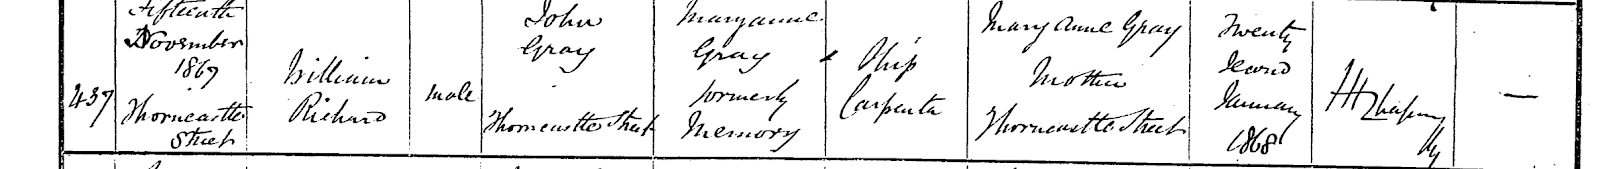 437
Fifteenth
November
1867
Thorncastle
Street
William
Richard
male
John
Gray
Thorncastle Street
Maryanne
Gray
formerly
Memory
Ship
Carpenter
Mary Anne Gray
Mother
Thorncastle Street
Twenty
Second
January
1868
—